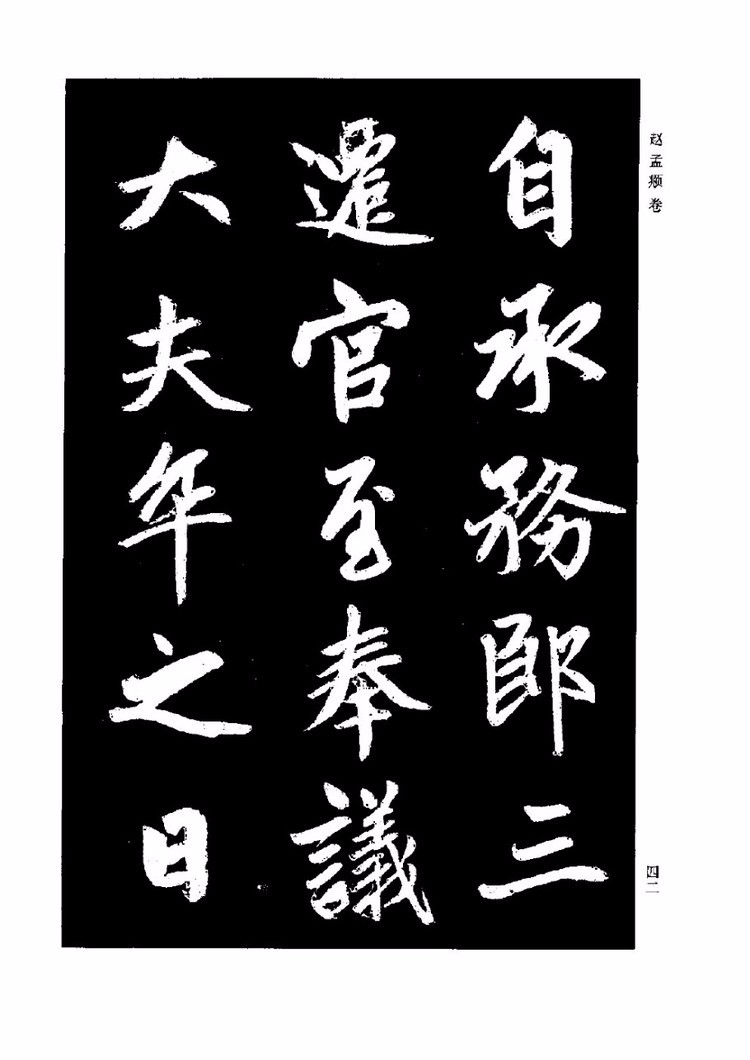 赵孟頫卷
自承務郎三
遷官至奉議
大夫卒之日
四二